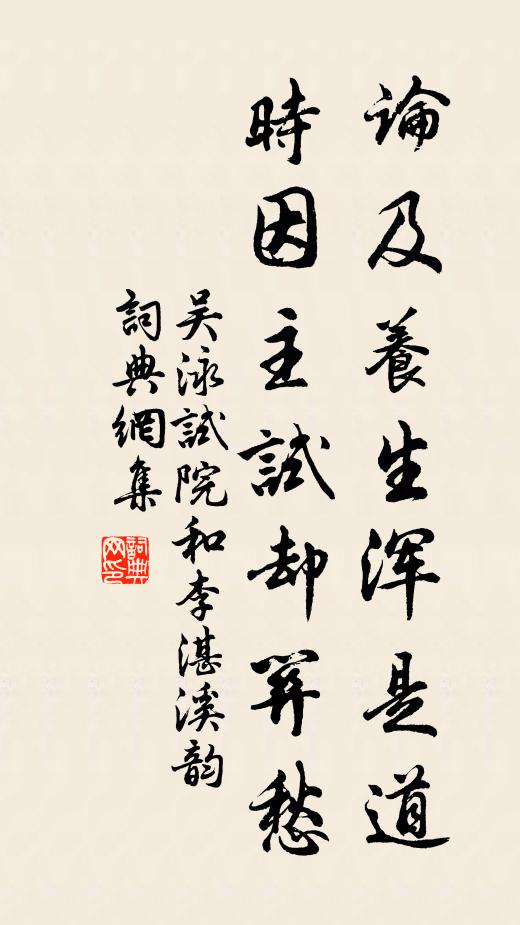 論及養生浑是道
時因主試却愁
吴泳試院和李湛溪韵
詞典網集
詞典网印